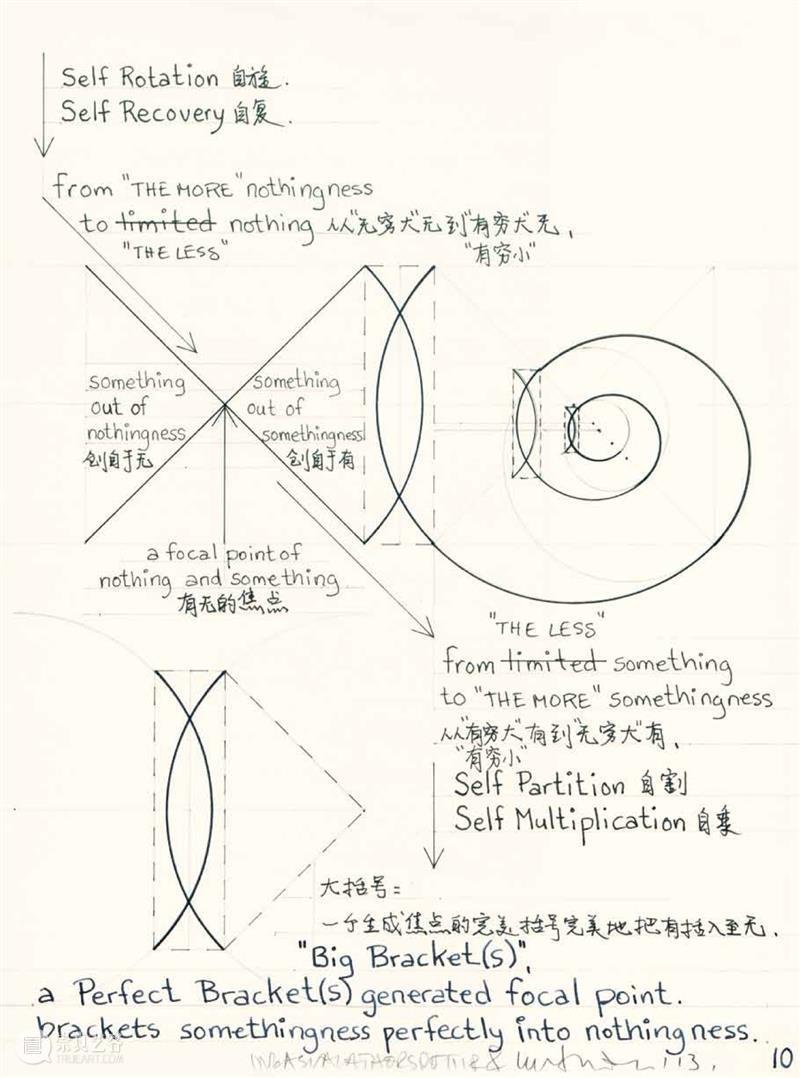 Self Rotation 自旋.
Self Recovery 自复.
from "THE MORE" nothingness
to limited nothing 从"无穷大"无到"有穷大"无,
"THE LESS" "有穷小"
something
out of
nothingness
创自于无
something
out of
somethingness
创自于有
a focal point of
nothing and something
有无的焦点
"THE LESS"
from limited something
to "THE MORE" somethingness
从"有穷大"有到"无穷大"有,
"有穷小"
Self Partition 自割
Self Multiplication 自乘
大括号:
一个生成焦点的完美括号完美地把有括入至无.
"Big Bracket(s)",
a Perfect Bracket(s) generated focal point.
brackets somethingness perfectly into nothingness.
崇真艺客
TRUEART.COM
10